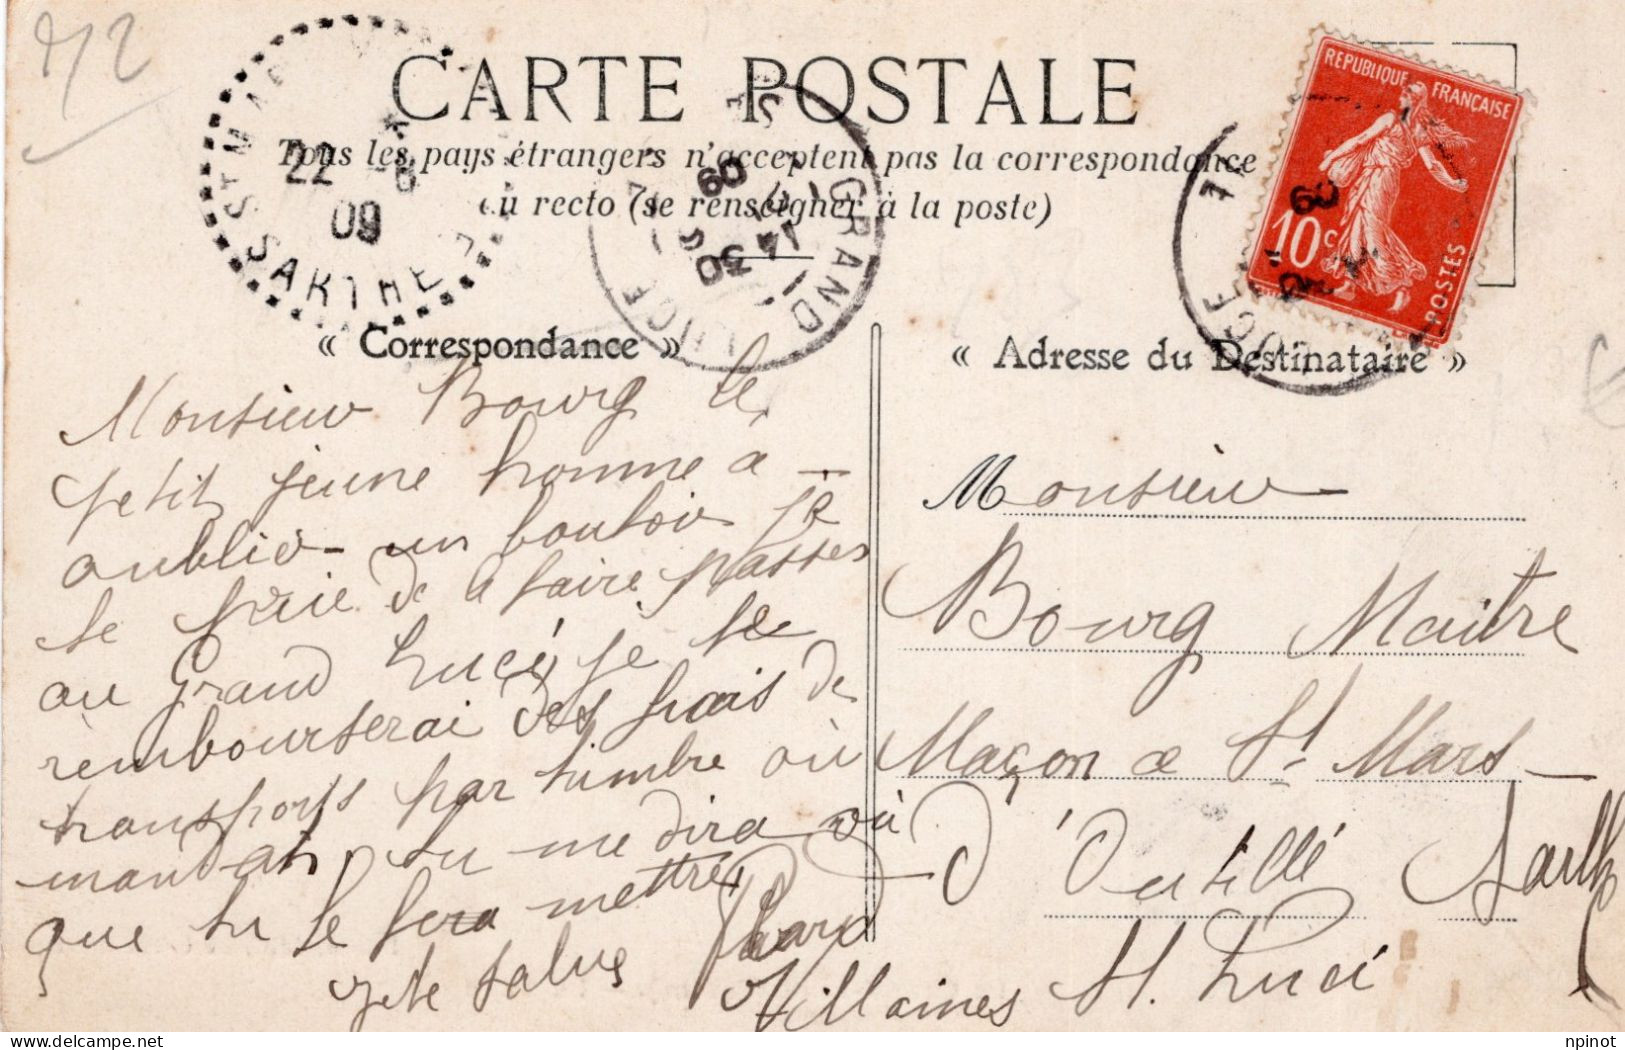 72
CARTE POSTALE
Tous les pays étrangers n'acceptent pas la correspondance
au recto (se renseigner à la poste)
22 6
09
SARTHE
GRAND LUCE
14 30
09
REPUBLIQUE FRANÇAISE
10c
POSTES
« Correspondance »
Monsieur Bourg le
petit jeune homme a
oublié un bouloir je
te prie de la faire passer
au Grand Lucé, je te
rembourserai des frais de
transports par timbre où
mandat, tu me dira où
que tu le fera mettre,
je te salue
Villaines St. Lucé
« Adresse du Destinataire »
Monsieur
Bourg Maitre
Maçon a St Mars
D'Outillé Sarthe
npinot